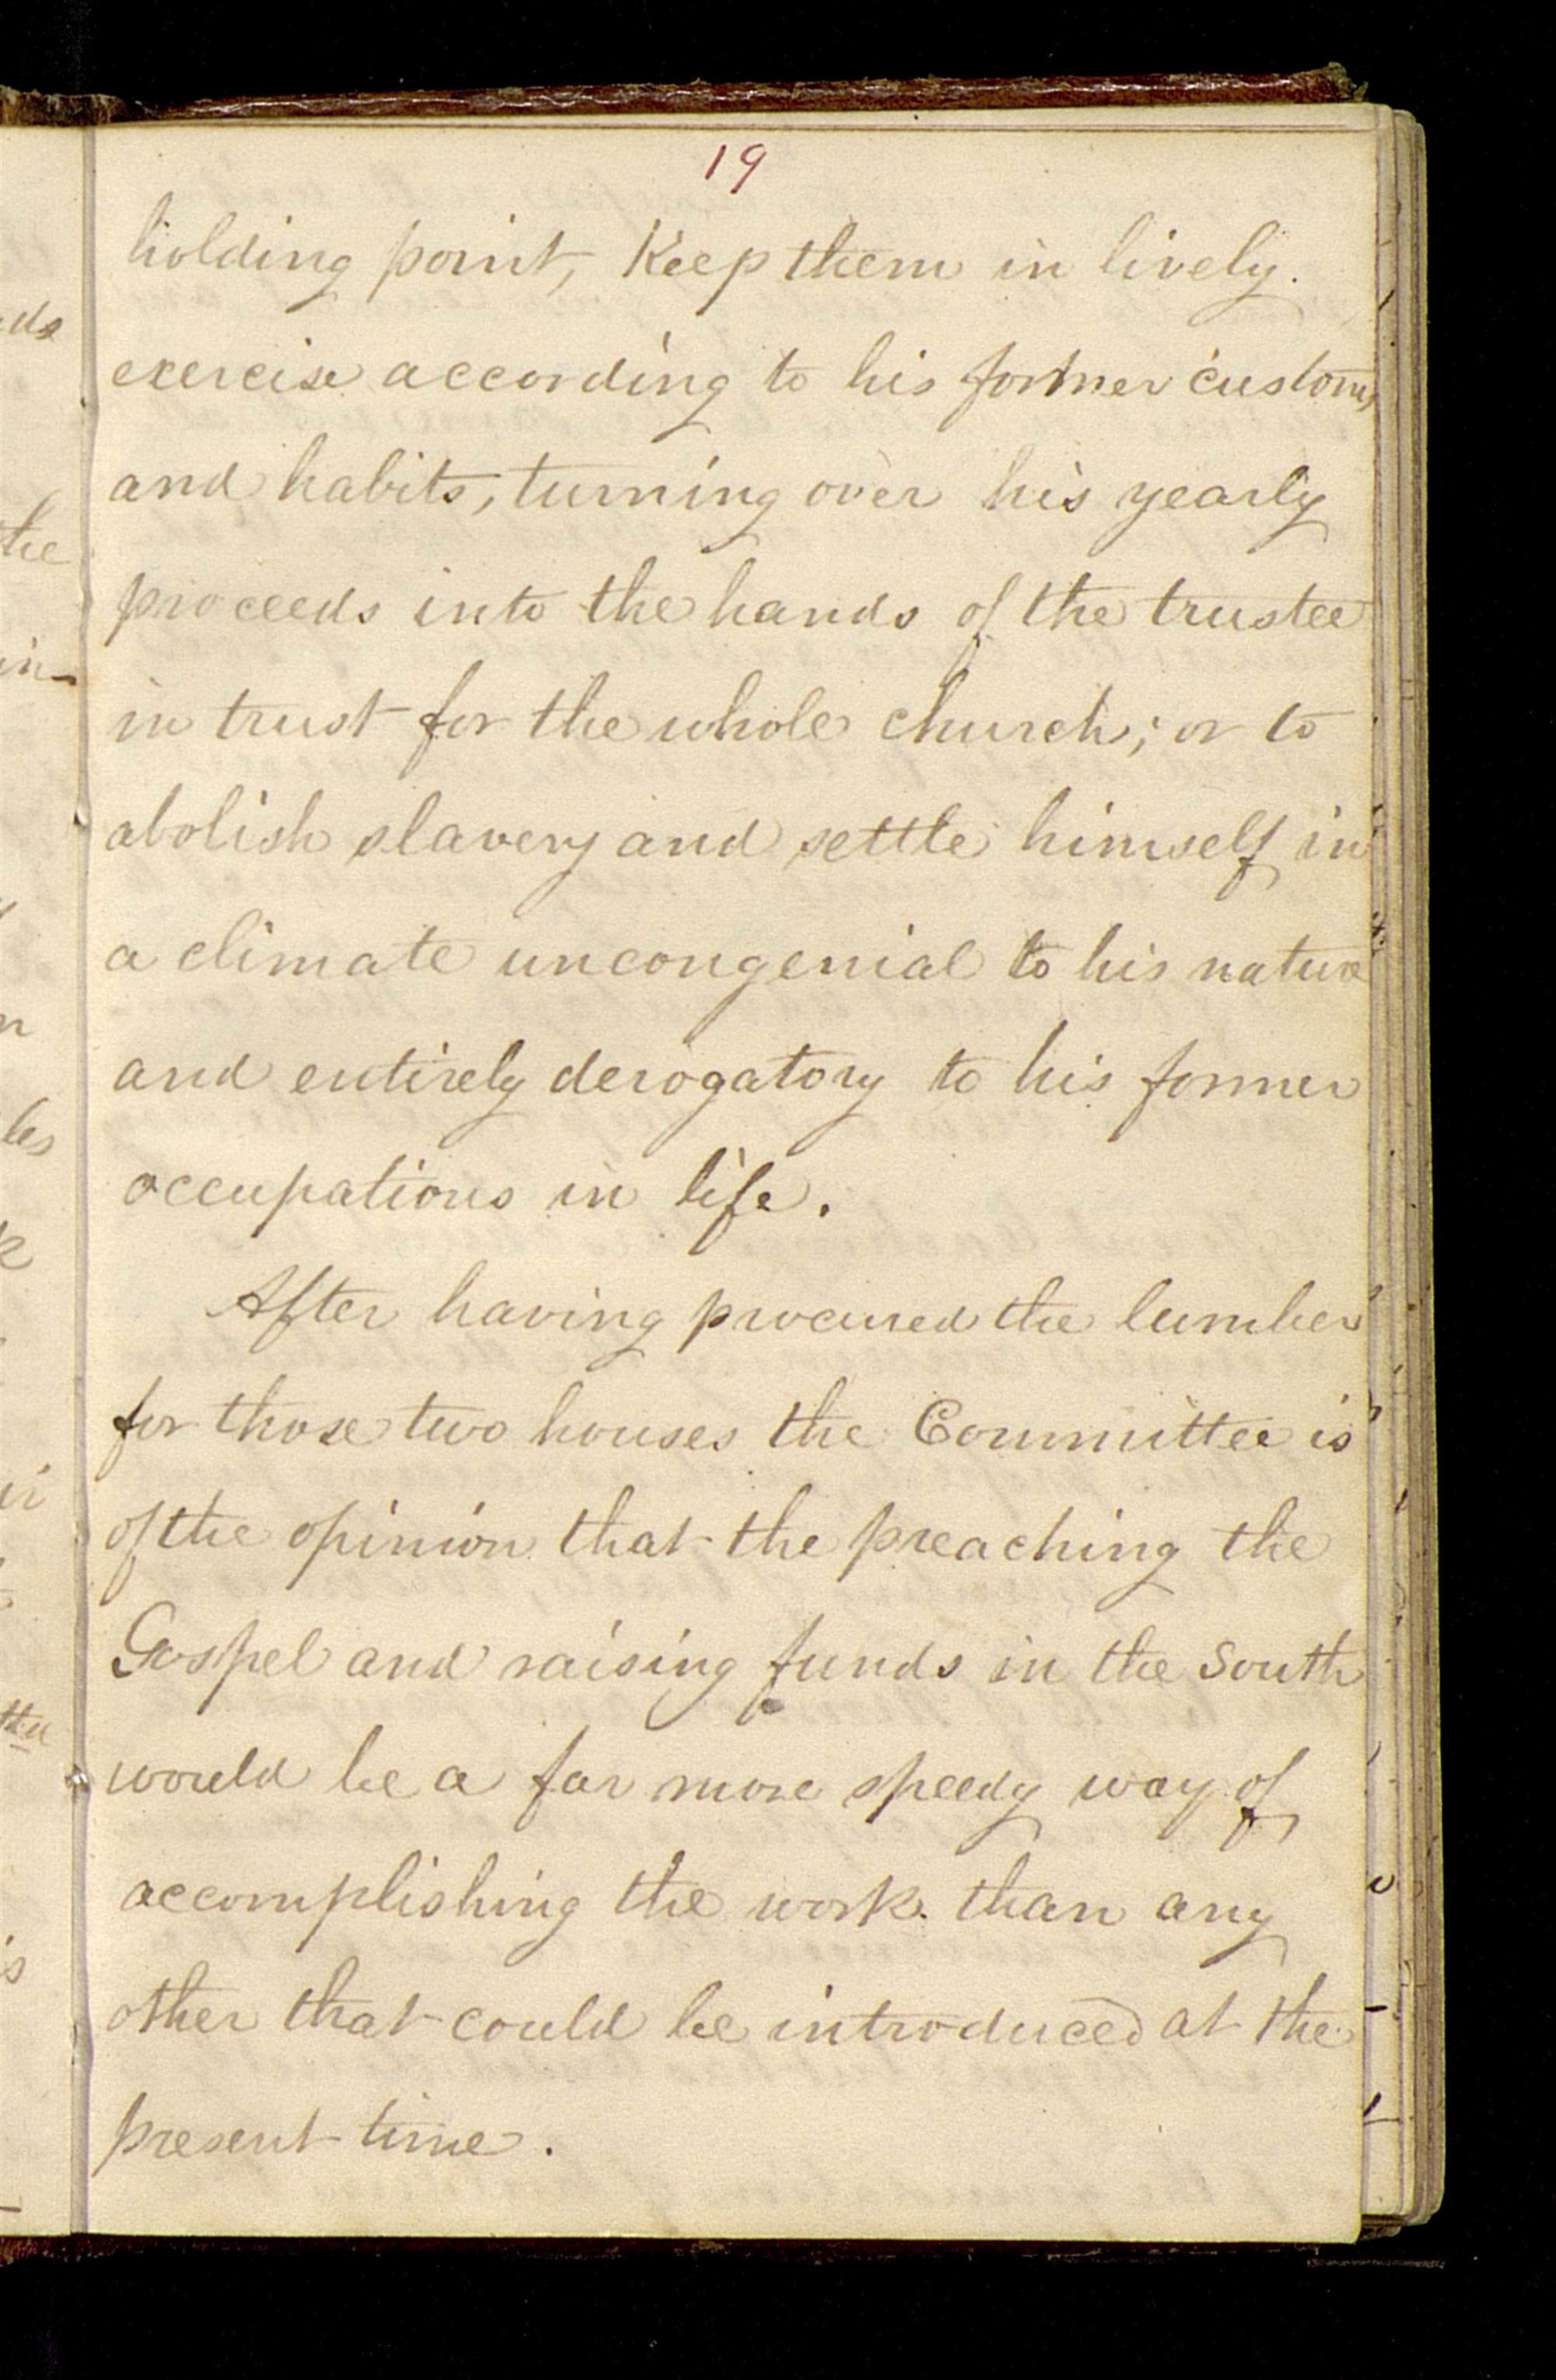 19
holding point, Keep them in lively.
exercise according to his former customs,
and habits, turning over his yearly
proceeds into the hands of the trustee
in trust for the whole church; or to
abolish slavery and settle himself in
a climate uncongenial to his nature
and entirely derogatory to his former
occupations in life.
After having procured the lumber
for those two houses the Committee is
of the opinion that the preaching the
Gospel and raising funds in the South
would be a far more speedy way of
accomplishing the work. than any
other that could be introduced at the
present time.